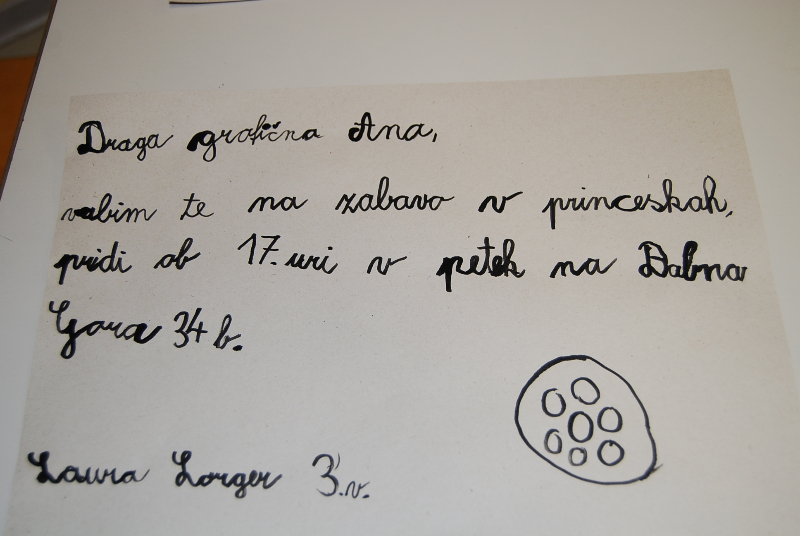 Draga grafična Ana,
vabim te na zabavo v princeskah,
pridi ob 17. uri v petek na Dabna
Gora 34 b.
Laura Lorger 3.v.